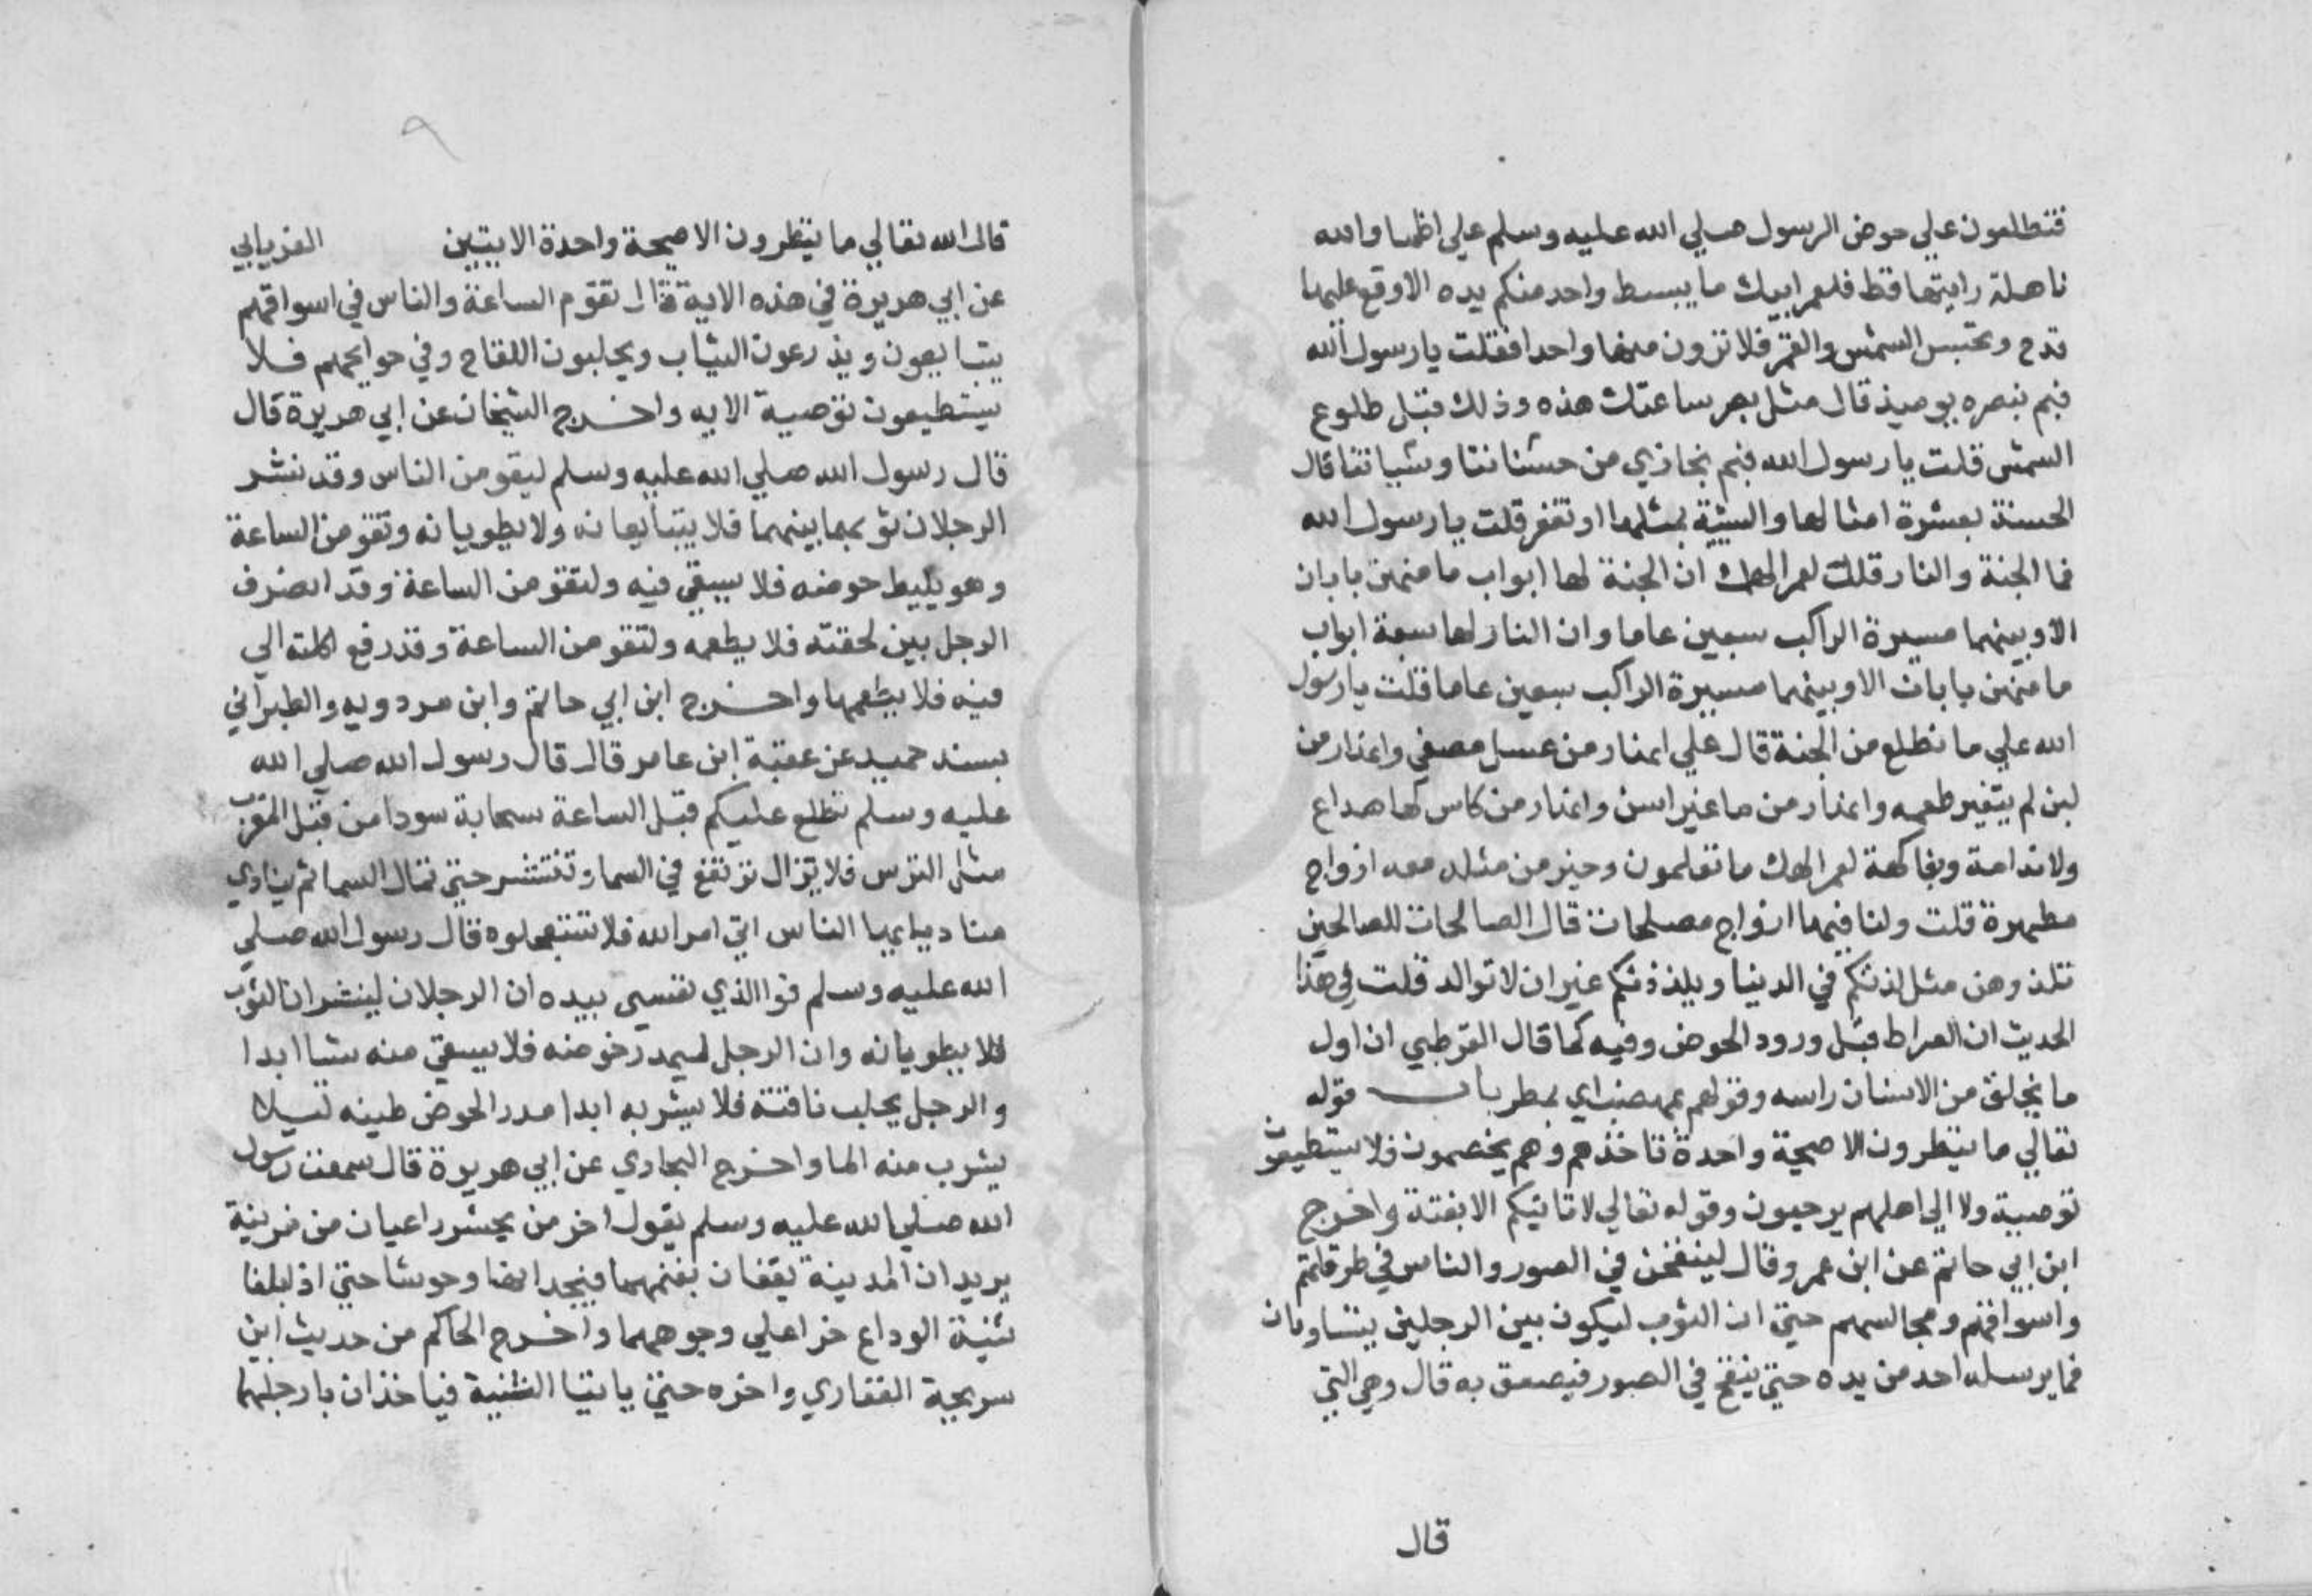 فتطلعون علي حوض الرسول صلي الله عليه وسلم علي اظما والله
ناهلة رايتها قط فلعمر ابيك ما يبسط واحد منكم يده الا وقع عليها
قدح وتحتبس الشمس والقمر فلا ترون منها واحدا فقلت يا رسول الله
فبم نبصره يوميذ قال مثل بصر ساعتك هذه وذلك قبل طلوع
الشمس قلت يا رسول الله فبم نجازي من حسناتنا وسياتنا قال
الحسنة بعشرة امثالها والسيئة بمثلها او تغفر قلت يا رسول الله
فما الجنة والنار قلت لعمر الهك ان الجنة لها ابواب ما منهن بابان
الا وبينهما مسيرة الراكب سبعين عاما وان النار لها سبعة ابواب
ما منهن بابان الا وبينهما مسيرة الراكب سبعين عاما قلت يا رسول
الله علي ما نطلع من الجنة قال علي انهار من عسل مصفي وانهار من
لبن لم يتغير طعمه وانهار من ما غير اسن وانهار من كاس لها صداع
ولا ندامة وبفاكهة لعمر الهك ما تعلمون وخير من مثله معه ازواج
مطهرة قلت ولنا فيها ازواج مصلحات قال الصالحات للصالحين
تلذوهن مثل لذتكم في الدنيا ويلذذنكم غير ان لا توالد قلت في هذا
الحديث ان الصراط قبل ورود الحوض وفيه كما قال القرطبي ان اول
ما يخلق من الانسان راسه وقولهم بمهضب اي بمطر باب قوله
تعالي ما ينظرون الا صيحة واحدة تاخذهم وهم يخصمون فلا يستطيعون
توصية ولا الي اهلهم يرجعون وقوله تعالي لا تاتيكم الا بغتة واخرج
ابن ابي حاتم عن ابن عمرو قال لينفخن في الصور والناس في طرقهم
واسواقهم ومجالسهم حتي ان الثوب ليكون بين الرجلين يتساومان
فما يرسله احد من يده حتي ينفخ في الصور فيصعق به قال وهي التي
قال
٩
قال الله تعالي ما ينظرون الا صيحة واحدة الايتين الفريابي
عن ابي هريرة في هذه الاية قال تقوم الساعة والناس في اسواقهم
يتبايعون ويذرعون الثياب ويحلبون اللقاح وفي حوايجهم فلا
يستطيعون توصية الايه واخرج الشيخان عن ابي هريرة قال
قال رسول الله صلي الله عليه وسلم ليقومن الناس وقد نشر
الرجلان ثوبهما بينهما فلا يتبايعانه ولا يطويانه وتقومن الساعة
وهو يليط حوضه فلا يسقي فيه ولتقومن الساعة وقد انصرف
الرجل بين لحقته فلا يطعمه ولتقومن الساعة وقد رفع اكلته الي
فيه فلا يطعمها واخرج ابن ابي حاتم وابن مردويه والطبراني
بسند حميد عن عقبة ابن عامر قال قال رسول الله صلي الله
عليه وسلم تطلع عليكم قبل الساعة سحابة سودا من قبل المغرب
مثل الترس فلا تزال ترتفع في السما وتنتشر حتي تمال السما ثم ينادي
مناد يا ايها الناس اتي امر الله فلا تستعجلوه قال رسول الله صلي
الله عليه وسلم فوا الذي نفسي بيده ان الرجلان لينشران الثوب
فلا يطويانه وان الرجل ليمدر حوضه فلا يسقي منه شيا ابدا
والرجل يحلب ناقته فلا يشربه ابدا مدر الحوض طينه ليلا
يشرب منه الما واخرج البخاري عن ابي هريرة قال سمعت رسول
الله صلي الله عليه وسلم يقول اخر من يحشر راعيان من مزينة
يريدان المدينة ينعقان بغنمهما فيجدانها وحوشا حتي اذ ابلغا
ثنية الوداع خرا علي وجوههما واخرج الحاكم من حديث ابن
سريحة الغفاري واخره حتي ياتيا الثنية فياخذان بارجلهما